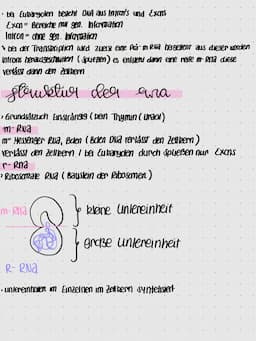 · bei Eukaryoten besteht DNA aus Intron's und Exons
Exon = Bereiche mit gen. Information
Intron = ohne gen. Information
> bei der Transkription wird zuerst eine Prä-m-RNA hergestellt aus dieser werden
Introns herausgeschnitten (Spleißen) es entsteht dann eine reife m-RNA diese
verlässt dann den Zellkern
Struktur der RNA
· Grundsätzlich Einsträngig (kein Thymin (Uracil)
m-RNA
m= Messenger RNA,
verlässt den Zellkern / bei Eukaryoten durch Spleißen nur Exons
r-RNA
· Ribosomale RNA (Baustein der Ribosomen)
m-RNA
kleine Untereinheit
große Untereinheit
R-RNA
· untereinheiten im Einzelnen im Zellkern synthetisiert